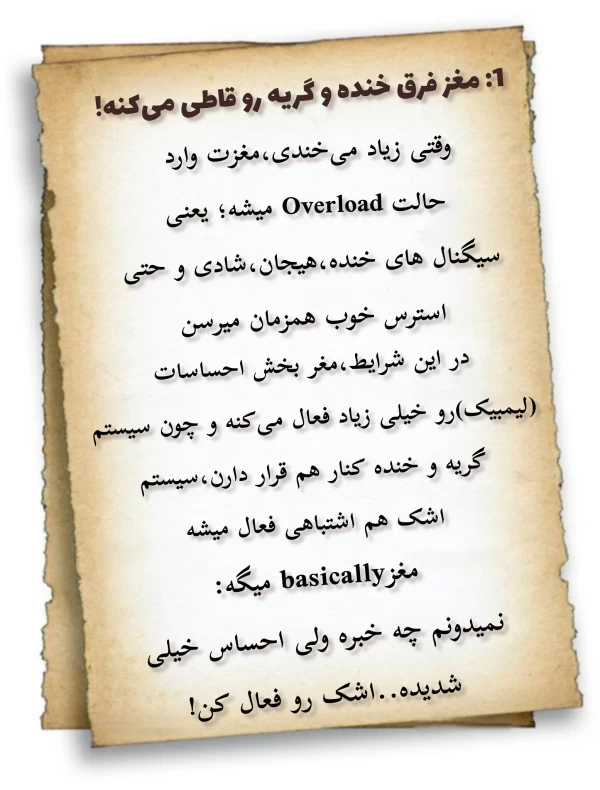 1: مغز فرق خنده و گریه رو قاطی می‌کنه!
وقتی زیاد می‌خندی،مغزت وارد
حالت Overload میشه؛ یعنی
سیگنال های خنده،هیجان،شادی و حتی
استرس خوب همزمان میرسن
در این شرایط،مغر بخش احساسات
(لیمبیک)رو خیلی زیاد فعال می‌کنه و چون سیستم
گریه و خنده کنار هم قرار دارن،سیستم
اشک هم اشتباهی فعال میشه
مغزbasically میگه:
نمیدونم چه خبره ولی احساس خیلی
شدیده..اشک رو فعال کن!